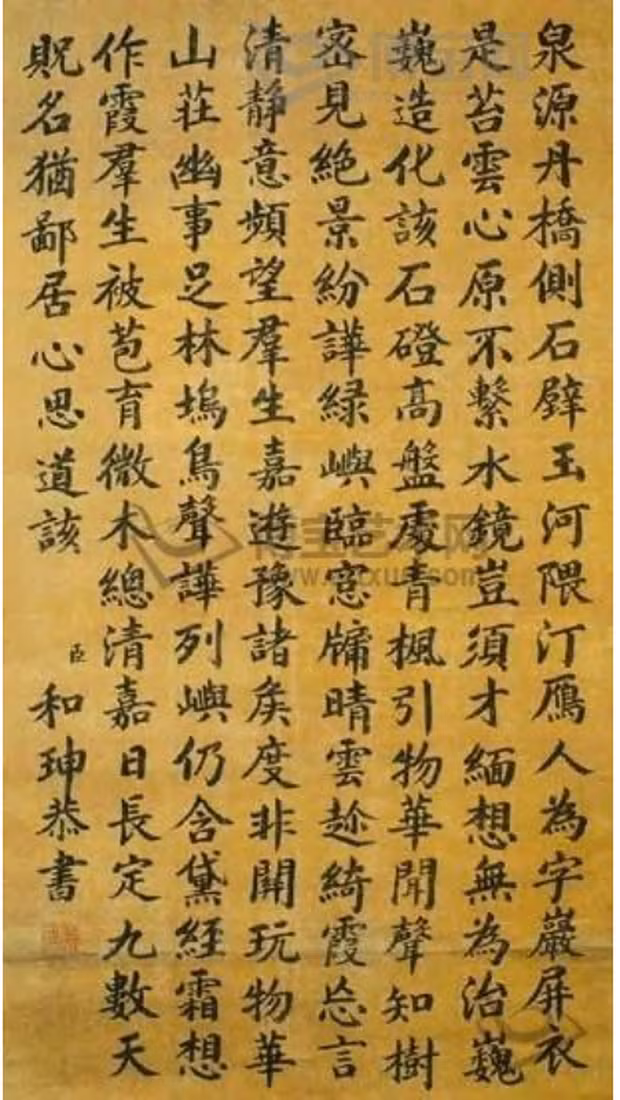 泉源丹橋側石壁玉河隈汀鴈人為字巖屏衣
是苔雲心原不繫水鏡豈須才緬想無為治巍
巍造化該石磴高盤處青楓引物華聞聲知樹
密見絶景紛譁緑嶼臨窓牖晴雲趁綺霞忘言
清静意頻望羣生嘉遊豫諸矦度非關玩物華
山莊幽事足林塢鳥聲譁列嶼仍含黛經霜想
作霞羣生被苞育微木總清嘉日長定九數天
貺名猶鄙居心思道該 臣和珅恭書